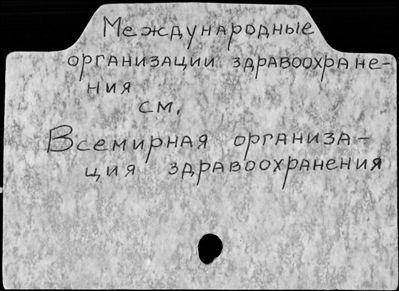 Международные
организации здравоохране-
ния
см.
Всемирная организа-
ция здравоохранения